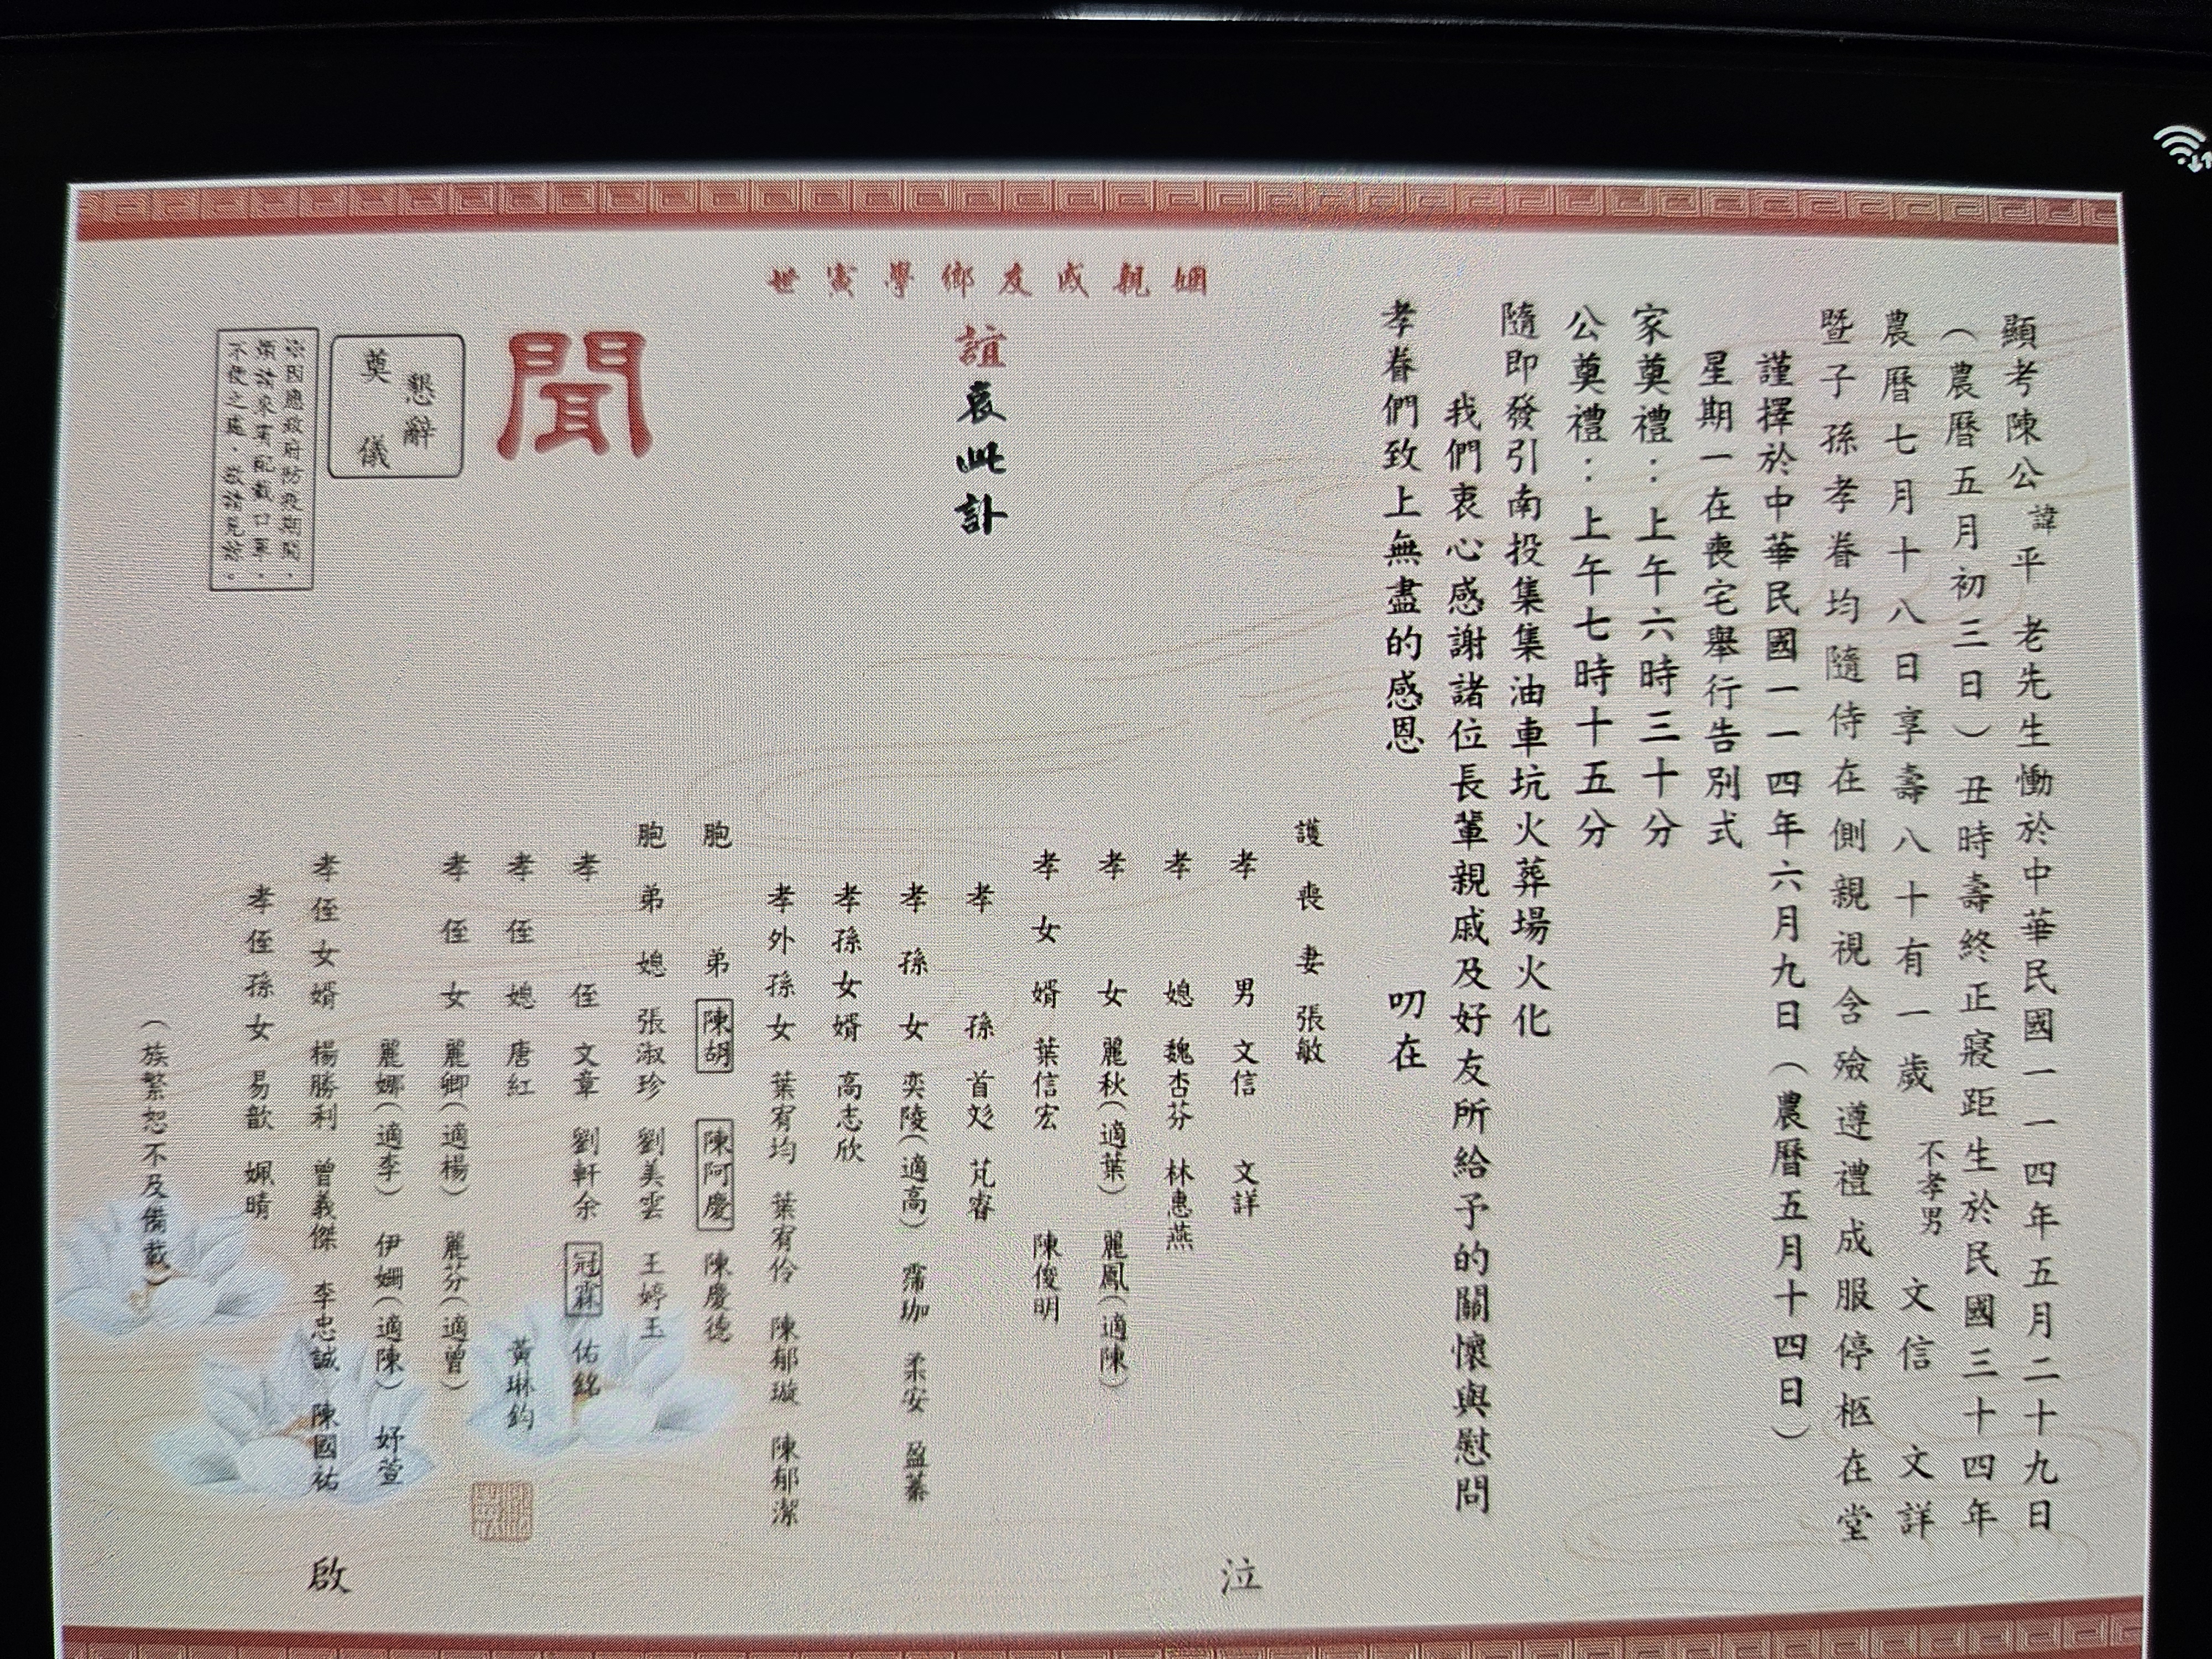 顯考陳公諱平 老先生慟於中華民國一一四年五月二十九日
（農曆五月初三日）丑時壽終正寢距生於民國三十四年
農曆七月十八日享壽八十有一歲 不孝男 文信 文詳
暨子孫孝眷均隨侍在側親視含殮遵禮成服停柩在堂
謹擇於中華民國一一四年六月九日（農曆五月十四日）
星期一在喪宅舉行告別式
家奠禮：上午六時三十分
公奠禮：上午七時十五分
隨即發引南投集集油車坑火葬場火化
我們衷心感謝諸位長輩親戚及好友所給予的關懷與慰問
孝眷們致上無盡的感恩 叨在
姻親戚友鄉學寅世
誼哀此訃
聞
護喪妻 張敏
孝男 文信 文詳
孝媳 魏杏芬 林惠燕
孝女 麗秋（適葉） 麗鳳（適陳）
孝女婿 葉信宏 陳俊明
孝孫 首彣 芃睿
孝孫女 奕陵（適高） 霈珈 柔安 盈蓁
孝孫女婿 高志欣
孝外孫女 葉宥均 葉宥伶 陳郁璇 陳郁潔
胞弟 陳胡 陳阿慶 陳慶德
胞弟媳 張淑珍 劉美雲 王婷玉
孝侄 文章 劉軒余 冠霖 佑銘
孝侄媳 唐紅 黃琳鈞
孝侄女 麗卿（適楊） 麗芬（適曾）
麗娜（適李） 伊姍（適陳） 妤萱
孝侄女婿 楊勝利 曾義傑 李忠誠 陳國祐
孝侄孫女 易歆 姵晴
（族繁恕不及備載）
泣
啟
懇辭
奠儀
※因應政府防疫期間，
煩請來賓配戴口罩，
不便之處，敬請見諒。